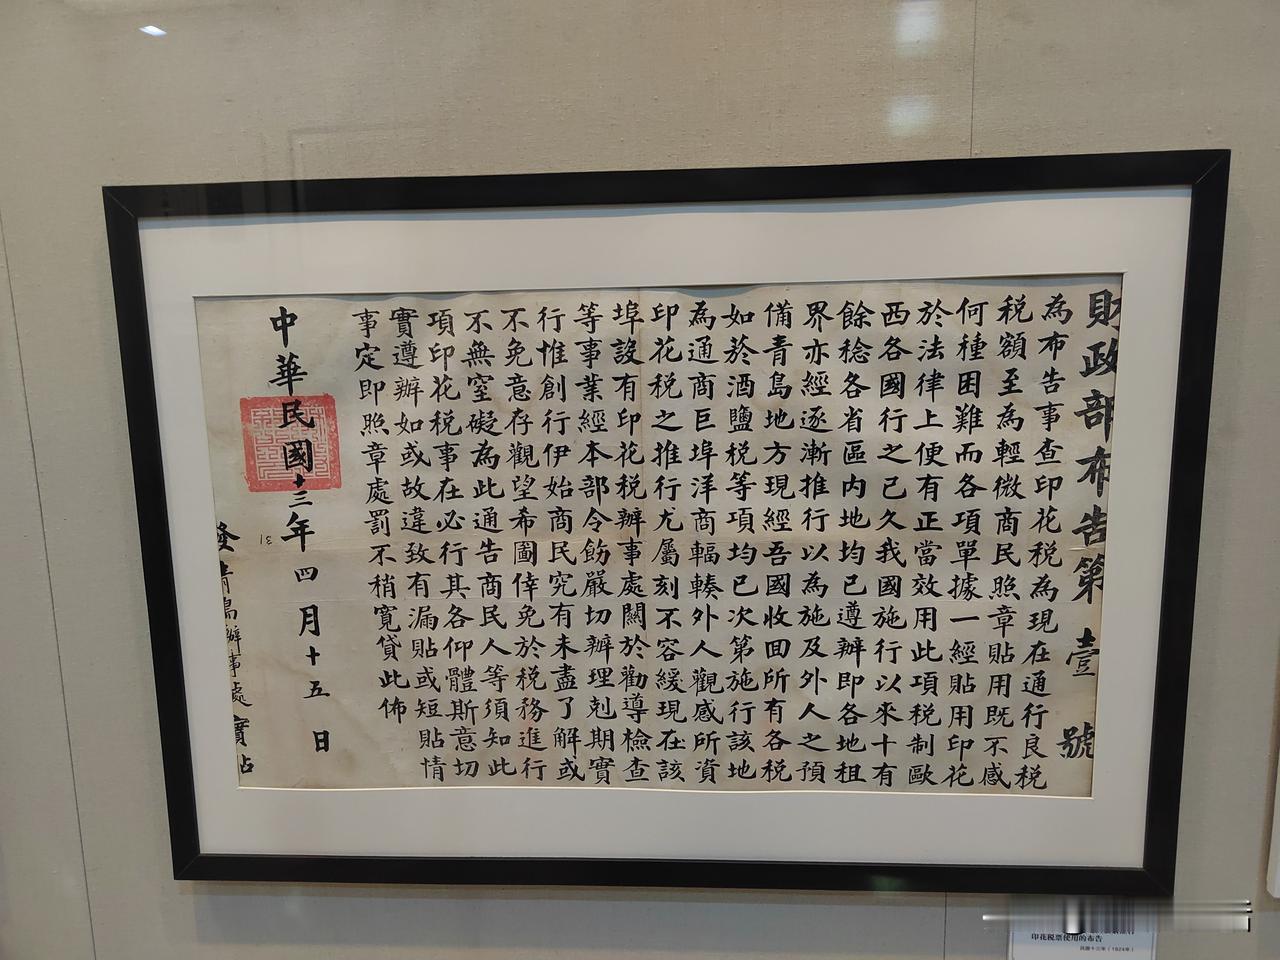 財政部布告第壹號
為布告事查印花税為現在通行良税
税額至為輕微商民照章貼用既不感
何種困難而各項單據一經貼用印花
於法律上便有正當效用此項税制歐
西各國行之已久我國施行以來十有
餘稔各省區內地均已遵辦即各地租
界亦經逐漸推行以為施及外人之預
備青島地方現經吾國收回所有各税
如菸酒鹽税等項均已次第施行該地
為通商巨埠洋商輻輳外人觀感所資
印花税之推行尤屬刻不容緩現在該
埠設有印花税辦事處關於勸導檢查
等事業經本部令飭嚴切辦理剋期實
行惟創行伊始商民究有未盡了解或
不免意存觀望希圖倖免於税務進行
不無窒礙為此通告商民人等須知此
項印花税事在必行其各仰體斯意切
實遵辦如或故違致有漏貼或短貼情
事定即照章處罰不稍寬貸此佈
中華民國十三年四月十五日
發青島辦事處實貼
印花税票使用的布告
民國十三年(1924年)